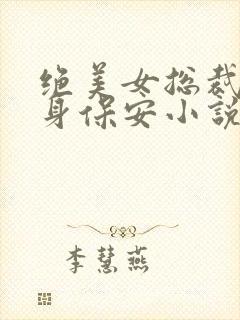 绝美女总裁
身保安小説
李慧燕